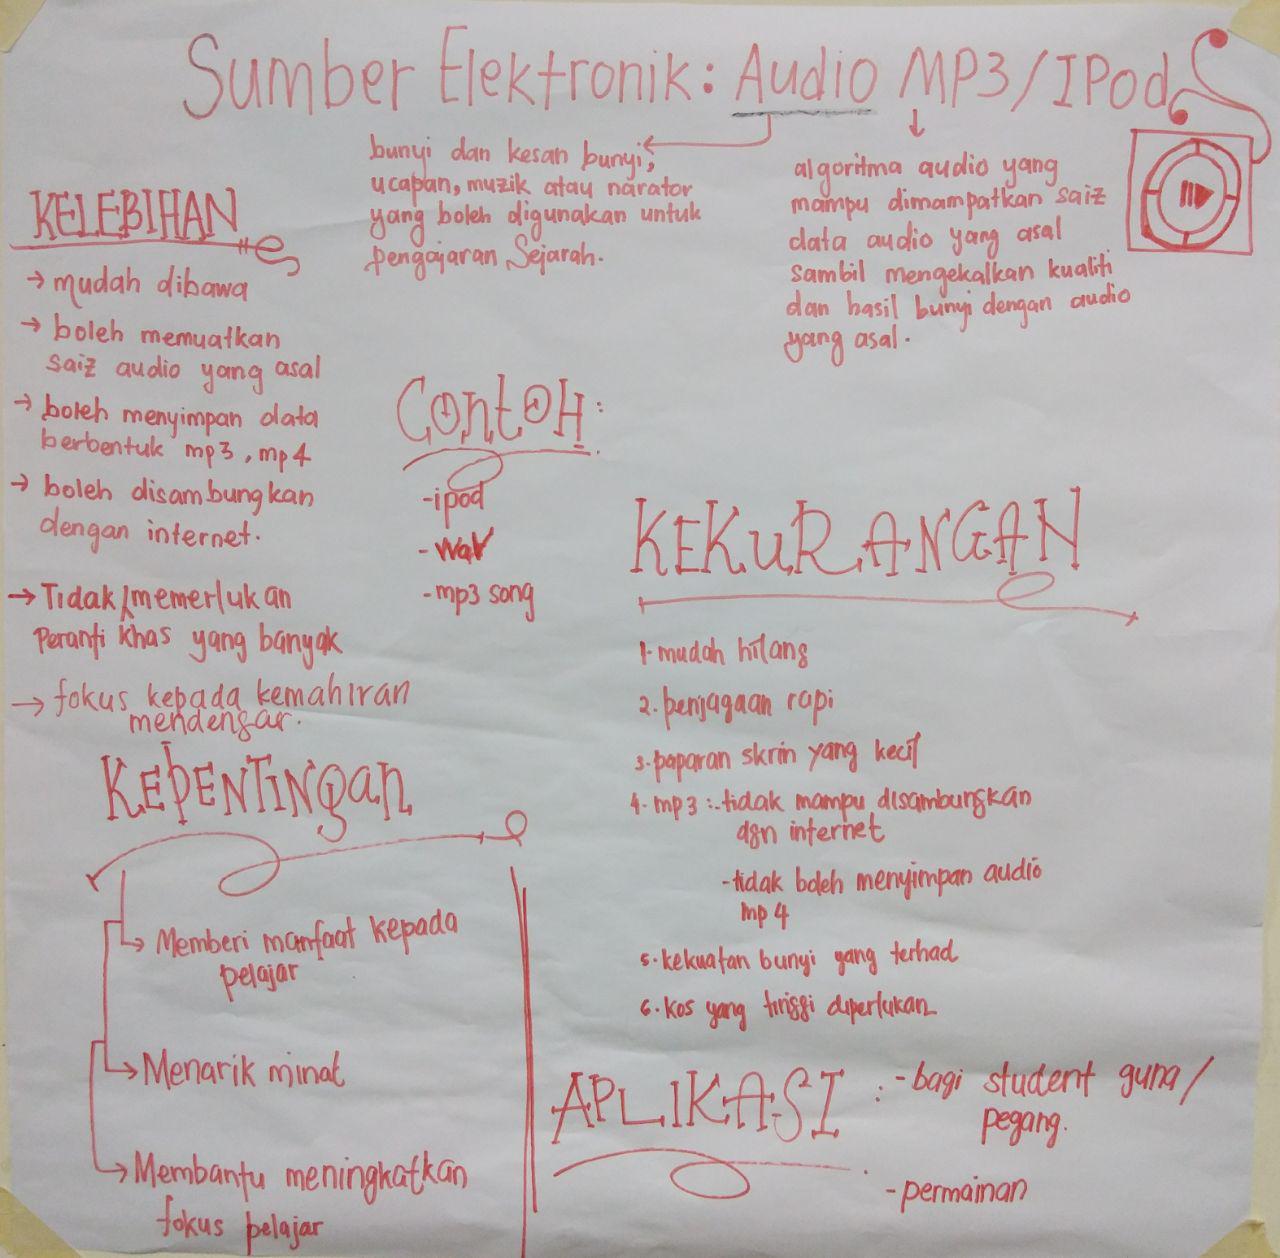 Sumber Elektronik: Audio MP3/IPod
bunyi dan kesan bunyi,
ucapan, muzik atau narator
yang boleh digunakan untuk
pengajaran Sejarah.
algoritma audio yang
mampu dimampatkan saiz
data audio yang asal
sambil mengekalkan kualiti
dan hasil bunyi dengan audio
yang asal.
KELEBIHAN
→ mudah dibawa
→ boleh memuatkan
saiz audio yang asal
→ boleh menyimpan data
berbentuk mp3, mp4
→ boleh disambungkan
dengan internet.
→ Tidak memerlukan
Peranti khas yang banyak
→ fokus kepada kemahiran
mendengar.
Contoh:
- ipod
- wav
- mp3 song
KEKURANGAN
1. mudah hilang
2. penjagaan rapi
3. paparan skrin yang kecil
4. mp3 :- tidak mampu disambungkan
dgn internet
- tidak boleh menyimpan audio
mp4
5. kekuatan bunyi yang terhad
6. kos yang tinggi diperlukan
KEPENTINGan
→ Memberi manfaat kepada
pelajar
→ Menarik minat
→ Membantu meningkatkan
fokus pelajar
APLIKASI : - bagi student guna/
pegang.
- permainan